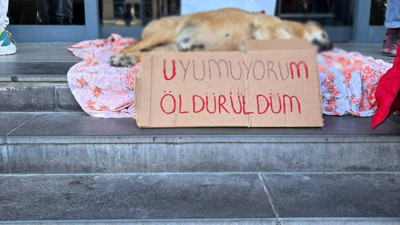 UYUMUYORUM
ÖLDÜRÜLDÜM